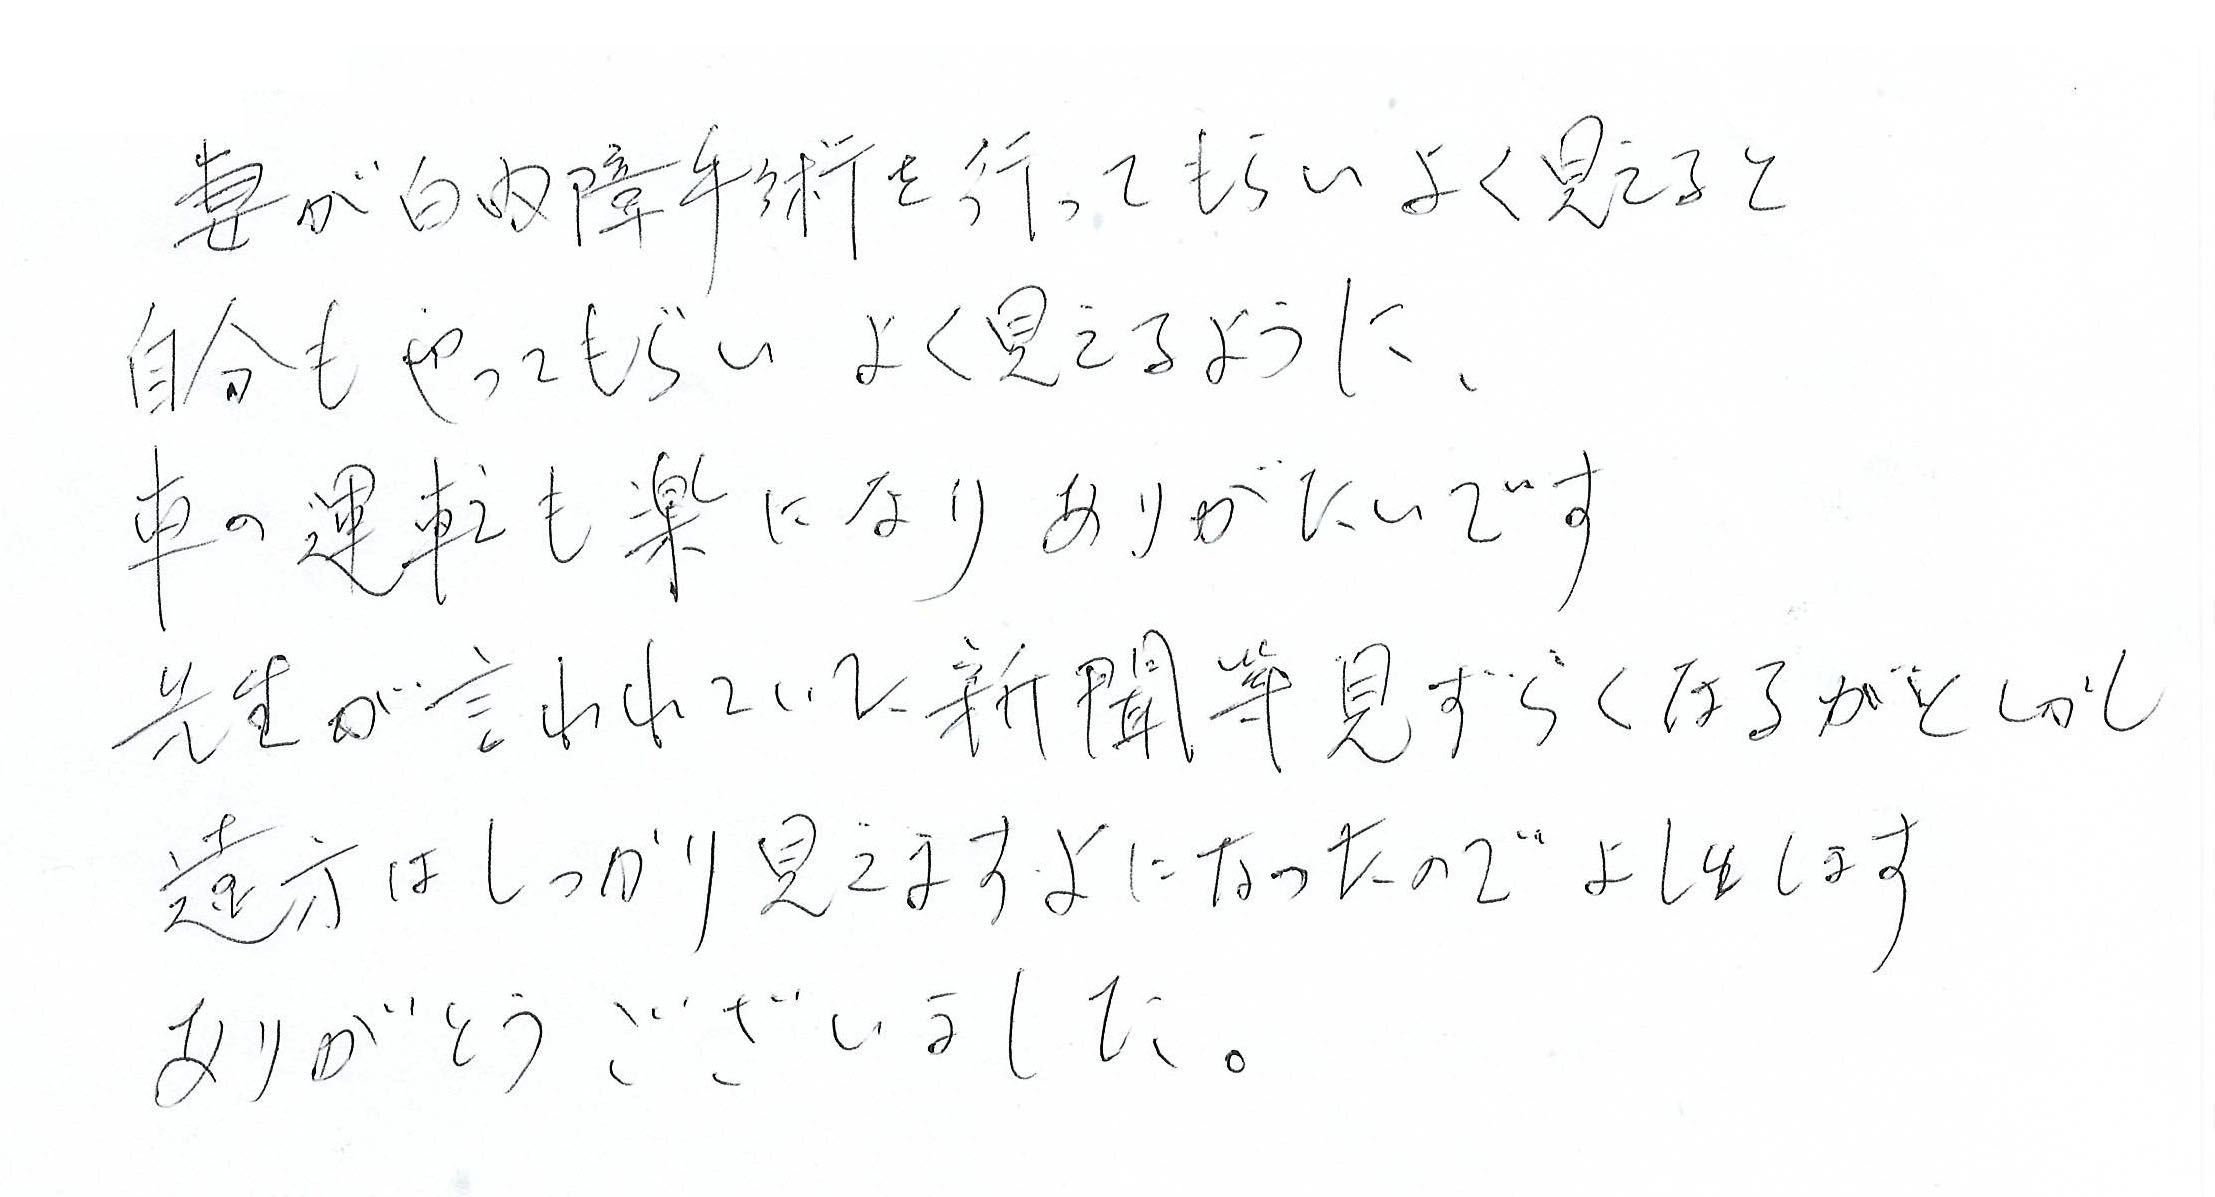 妻が白内障手術を行ってもらいよく見えると
自分もやってもらい よく見えるように、
車の運転も楽になり ありがたいです
先生が言われていた新聞等見ずらくなるがとしかし
遠方はしっかり見えますよになったのでよしとします
ありがとうございました。